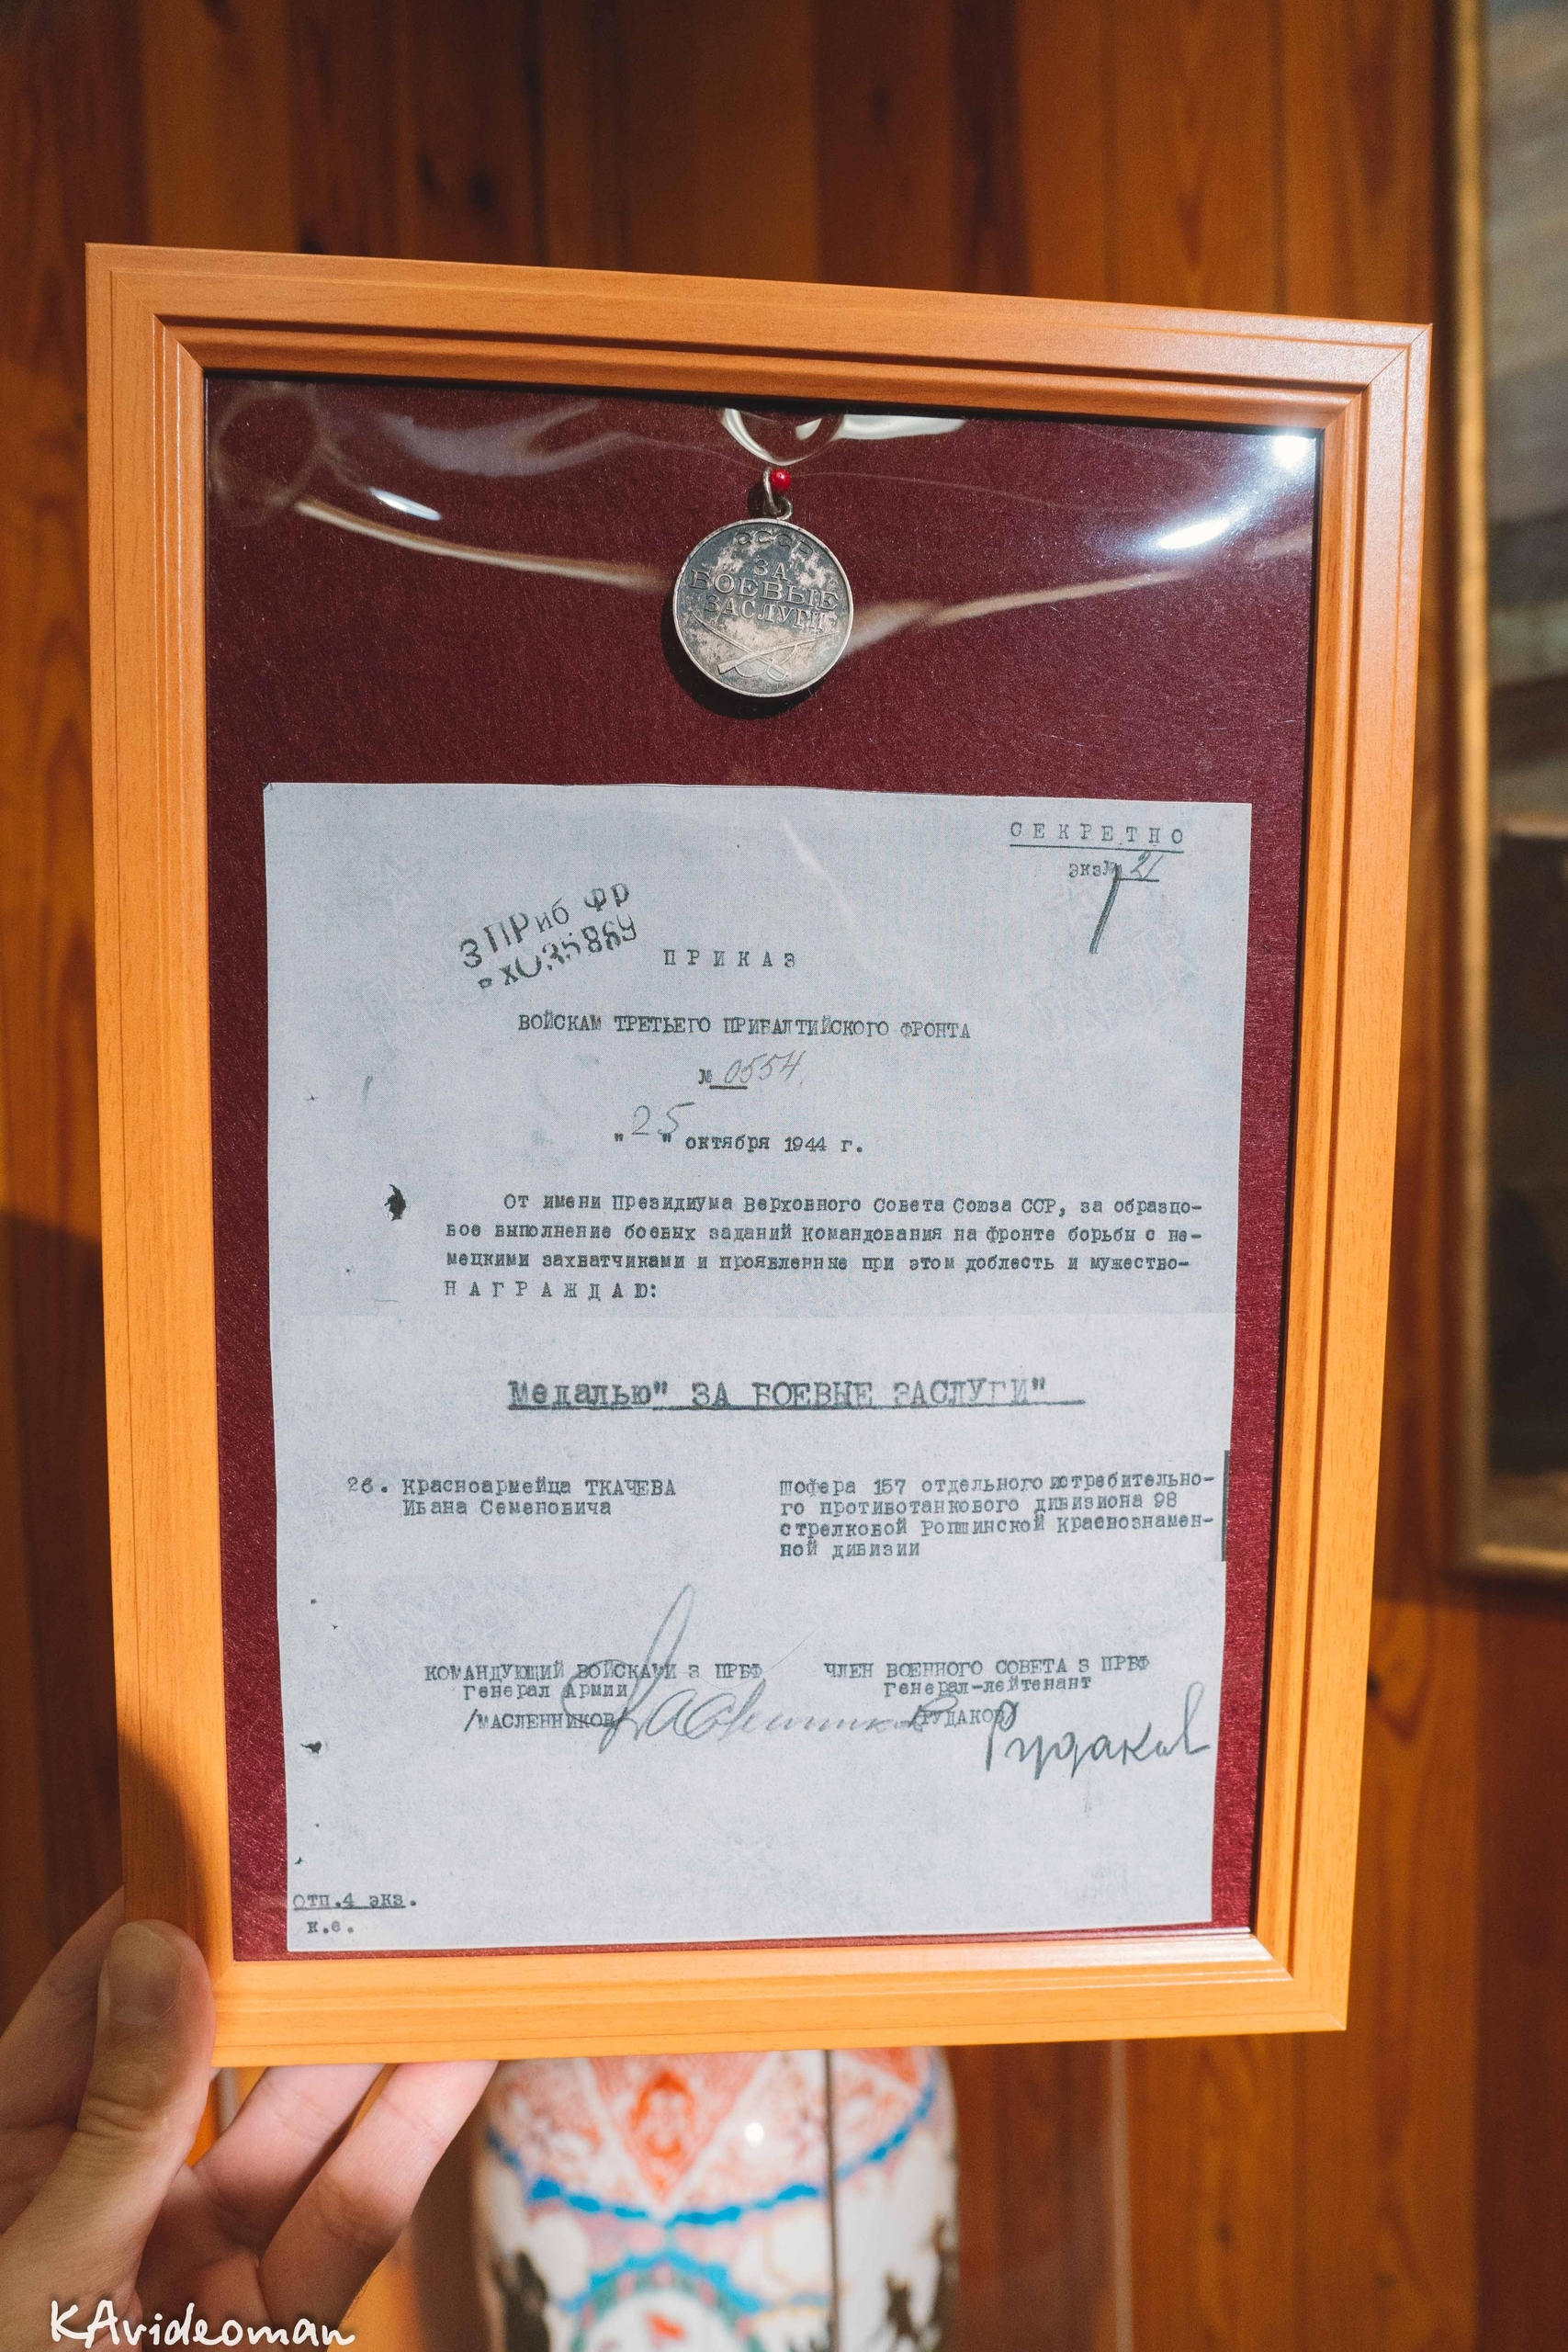 СССР
ЗА
БОЕВЫЕ
ЗАСЛУГИ
СЕКРЕТНО
экз№ 21
3 ПРиб Фр
ПРИКАЗ
ВОЙСКАМ ТРЕТЬЕГО ПРИБАЛТИЙСКОГО ФРОНТА
№ 0554
"25" октября 1944 г.
От имени Президиума Верховного Совета Союза ССР, за образцо-
вое выполнение боевых заданий Командования на фронте борьбы с не-
мецкими захватчиками и проявленные при этом доблесть и мужество-
НАГРАЖДАЮ:
Медалью" ЗА БОЕВЫЕ ЗАСЛУГИ"
26. Красноармейца ТКАЧЕВА
Ивана Семеновича
Шофера 157 отдельного истребительно-
го противотанкового дивизиона 98
стрелковой Ропшинской Краснознамен-
ной дивизии
КОМАНДУЮЩИЙ ВОЙСКАМИ 3 ПРБФ
Генерал Армии
/МАСЛЕННИКОВ/
ЧЛЕН ВОЕННОГО СОВЕТА 3 ПРБФ
Генерал-лейтенант
/РУДАКОВ/
Рудаков
Отп.4 экз.
к.е.
KAvideoman